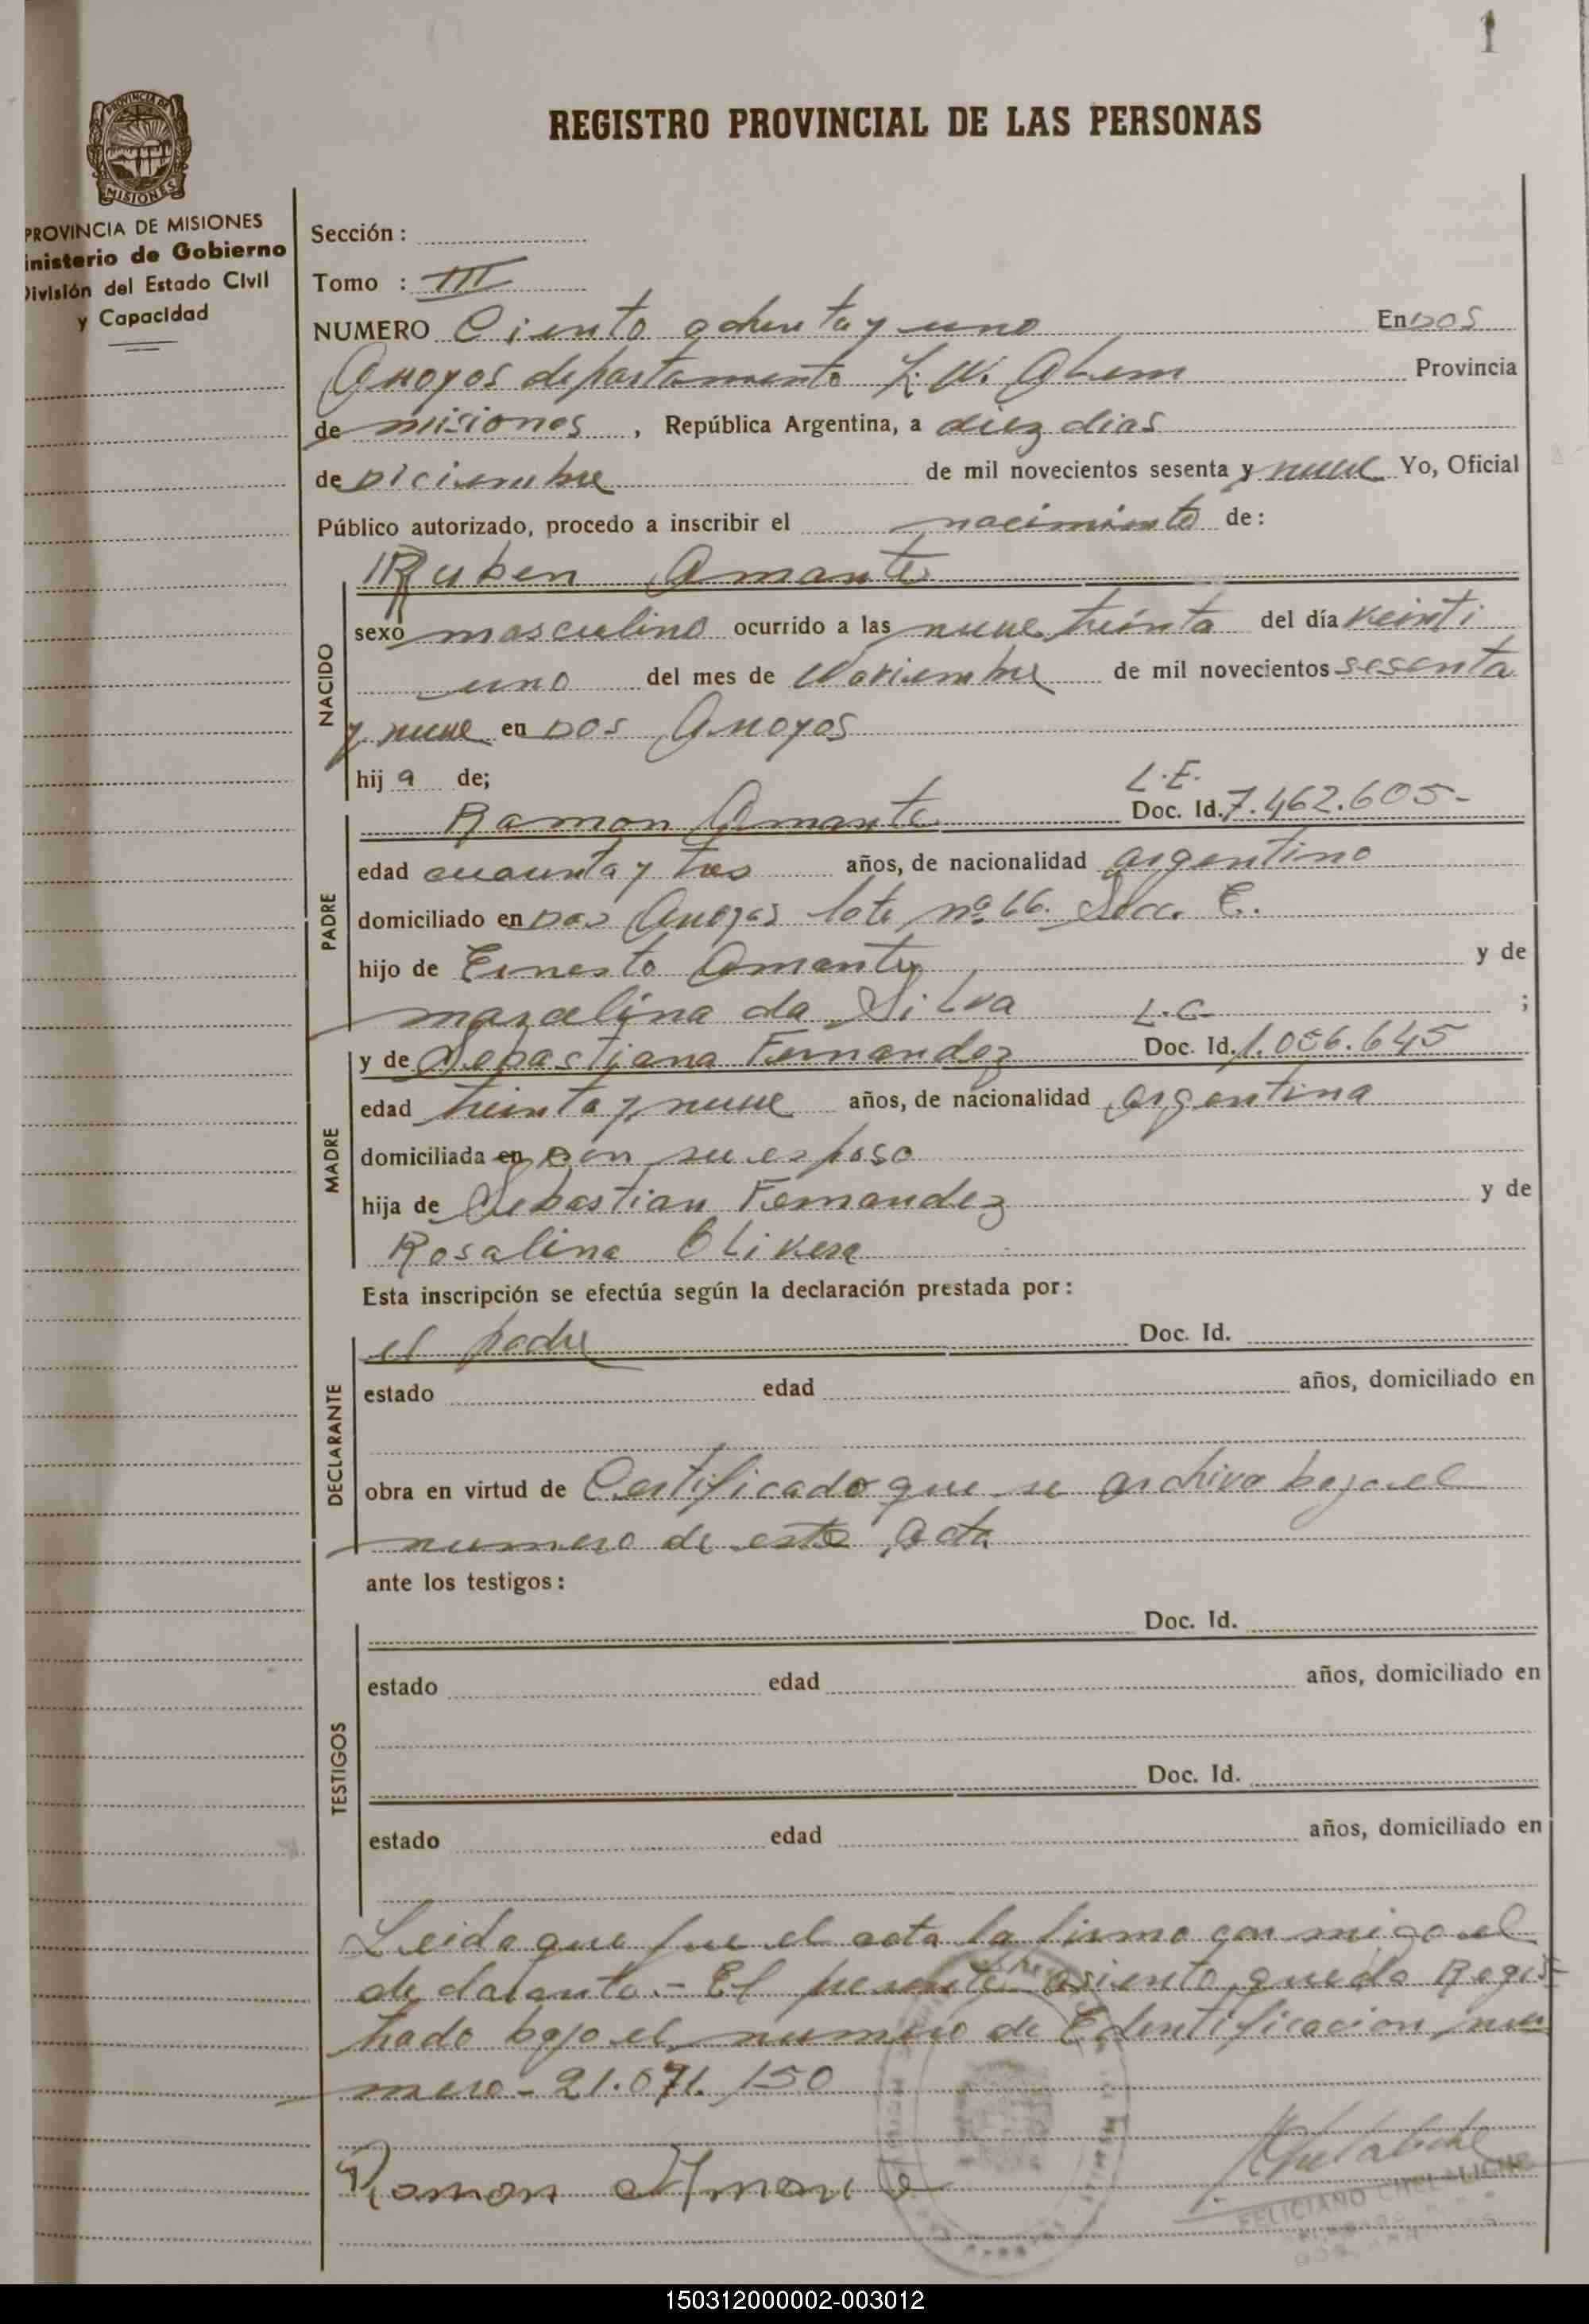 1
REGISTRO PROVINCIAL DE LAS PERSONAS
PROVINCIA DE
MISIONES
PROVINCIA DE MISIONES
inisterio de Gobierno
División del Estado Civil
y Capacidad
Sección :
Tomo : III
NUMERO Ciento ochenta y uno En Dos
Arroyos departamento L. N. Alem Provincia
de misiones , República Argentina, a diez dias
de Diciembre de mil novecientos sesenta y nueve Yo, Oficial
Público autorizado, procedo a inscribir el nacimiento de:
Ruben Amante
NACIDO
sexo masculino ocurrido a las nueve treinta del día veinti
uno del mes de Noviembre de mil novecientos sesenta
y nueve en Dos Arroyos
hij o de;
L.E.
Ramon Amante Doc. Id. 7.462.605-
PADRE
edad cuarenta y tres años, de nacionalidad argentino
domiciliado en Dos Arroyos lote nº 66. Secc. E.
hijo de Ernesto Amante y de
marcelina da Silva L.C. ;
MADRE
y de Sebastiana Fernandez Doc. Id. 1.056.645
edad treinta y nueve años, de nacionalidad argentina
domiciliada en con su esposo
hija de Sebastian Fernandez y de
Rosalina Olivera
Esta inscripción se efectúa según la declaración prestada por:
DECLARANTE
el padre Doc. Id.
estado edad años, domiciliado en
obra en virtud de Certificado que se archiva bajo el
numero de esta acta
ante los testigos:
TESTIGOS
Doc. Id.
estado edad años, domiciliado en
Doc. Id.
estado edad años, domiciliado en
Leida que fue el acta la firma con migo el
declarante.- El presente asiento queda Regis
trado bajo el numero de Edentificacion nu
mero - 21.071.150
Ramon Amante
FELICIANO CHELALICHE
150312000002-003012